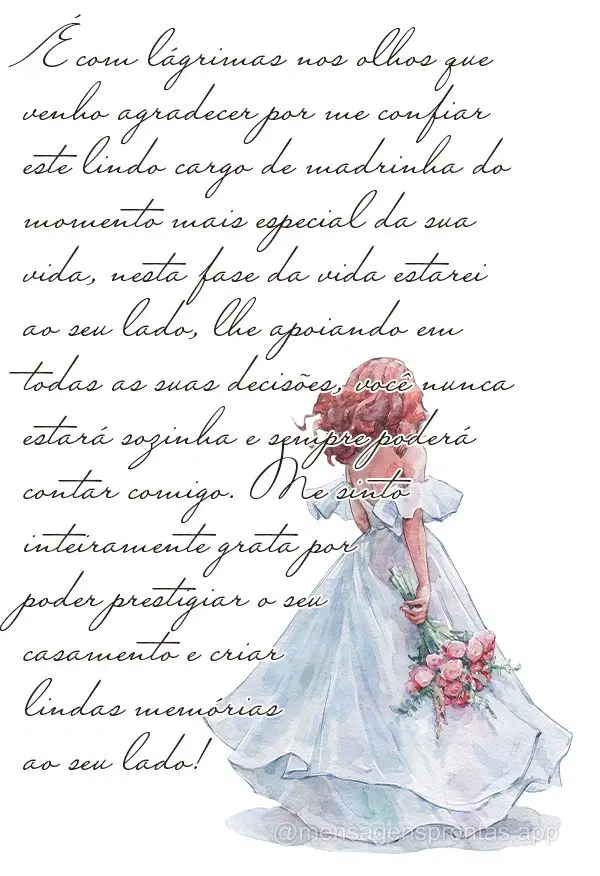 É com lágrimas nos olhos que
venho agradecer por me confiar
este lindo cargo de madrinha do
momento mais especial da sua
vida, nesta fase da vida estarei
ao seu lado, lhe apoiando em
todas as suas decisões, você nunca
estará sozinha e sempre poderá
contar comigo. Me sinto
inteiramente grata por
poder prestigiar o seu
casamento e criar
lindas memórias
ao seu lado!
@mensagensprontas.app